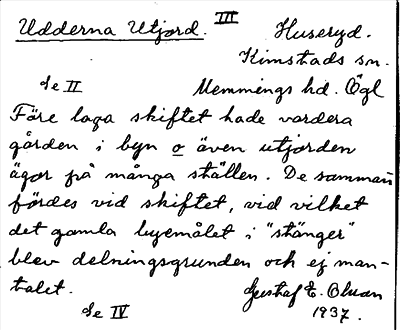 Udderna Utjord. III Huseryd.
Kimstads sn.
Se II Memmings hd. Ögl
Före laga skiftet hade vardera
gården i byn o även utjorden
ägor på många ställen. De samman
fördes vid skiftet, vid vilket
det gamla byemålet i "stänger"
blev delningsgrunden och ej man-
talet. Gustaf E. Olsson
Se IV 1937.